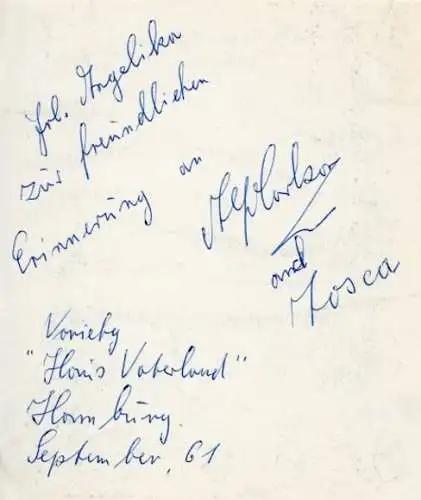 Frl. Angelika
zur freundlichen
Erinnerung an
and
Tosca
Variety
"Haus Vaterland"
Hamburg.
September, 61